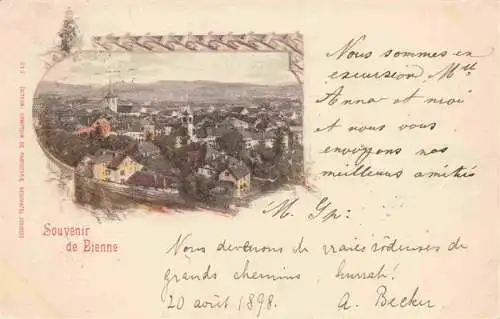 Nous sommes en
excursion Mlle
Anna et moi
et nous vous
envoyons nos
meilleures amitiés
M. Gp:
Souvenir
de Bienne
Nous devenons de vraies rôdeuses de
grands chemins hurrah!
20 août 1898. A. Becker